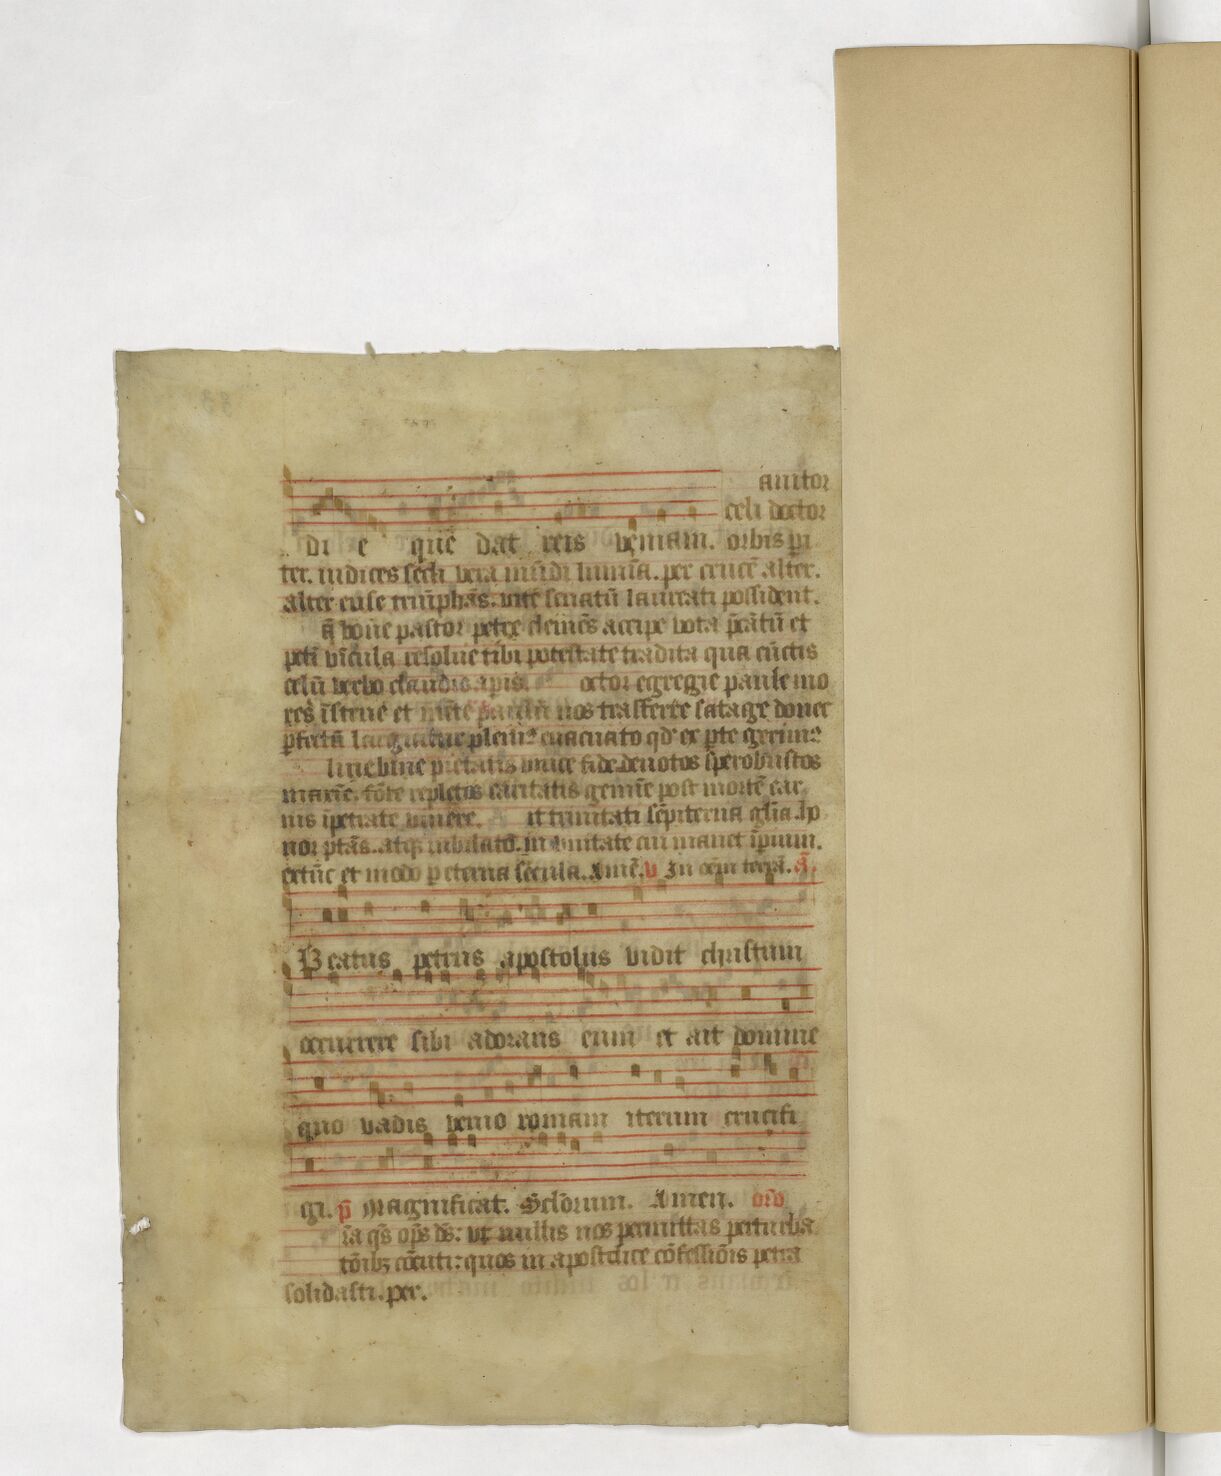 anitor
celi doctor
di e quē dat reis veniam. orbis pi
ter. iudices secli vera mūdi lumīa. per crucē alter.
alter ense triūphās. vite senatū laureati possident.
ā bone pastor petre clemēs accipe vota p̄cātū et
peti vīcula resolue tibi potestate tradita qua cūctis
celū verbo claudis apis. octor egregie paule mo
res īstrue et nos trāsferre satage donec
ꝑfectū largiatur pleniꝰ euacuato qd ex ꝑte gerimꝰ
liue bine pietatis vnice fide deuotos spe robustos
maxīe. fōte repletos caritatis gemīe post mortē car
nis īpetrate viuere. it trinitati sēpiterna glīa. ho
nor ptās. atqꝫ iubilatō. in vnitate cui manet īperium.
extūc et modo ꝑ eterna sēcula. Amē. v In oēm terrā. ā.
Beatus petrus apostolus vidit christum
occurrere sibi adorans eum et ait domine
quo vadis venio romam iterum crucifi
gi. p̄ Magnificat. Sclōrum. Amen. orō
ra qs̄ ops̄ ds̄: vt nullis nos permittas perturba
tōibꝫ cōcuti: quos in apostolice cōfessiōis petra
solidasti. per.